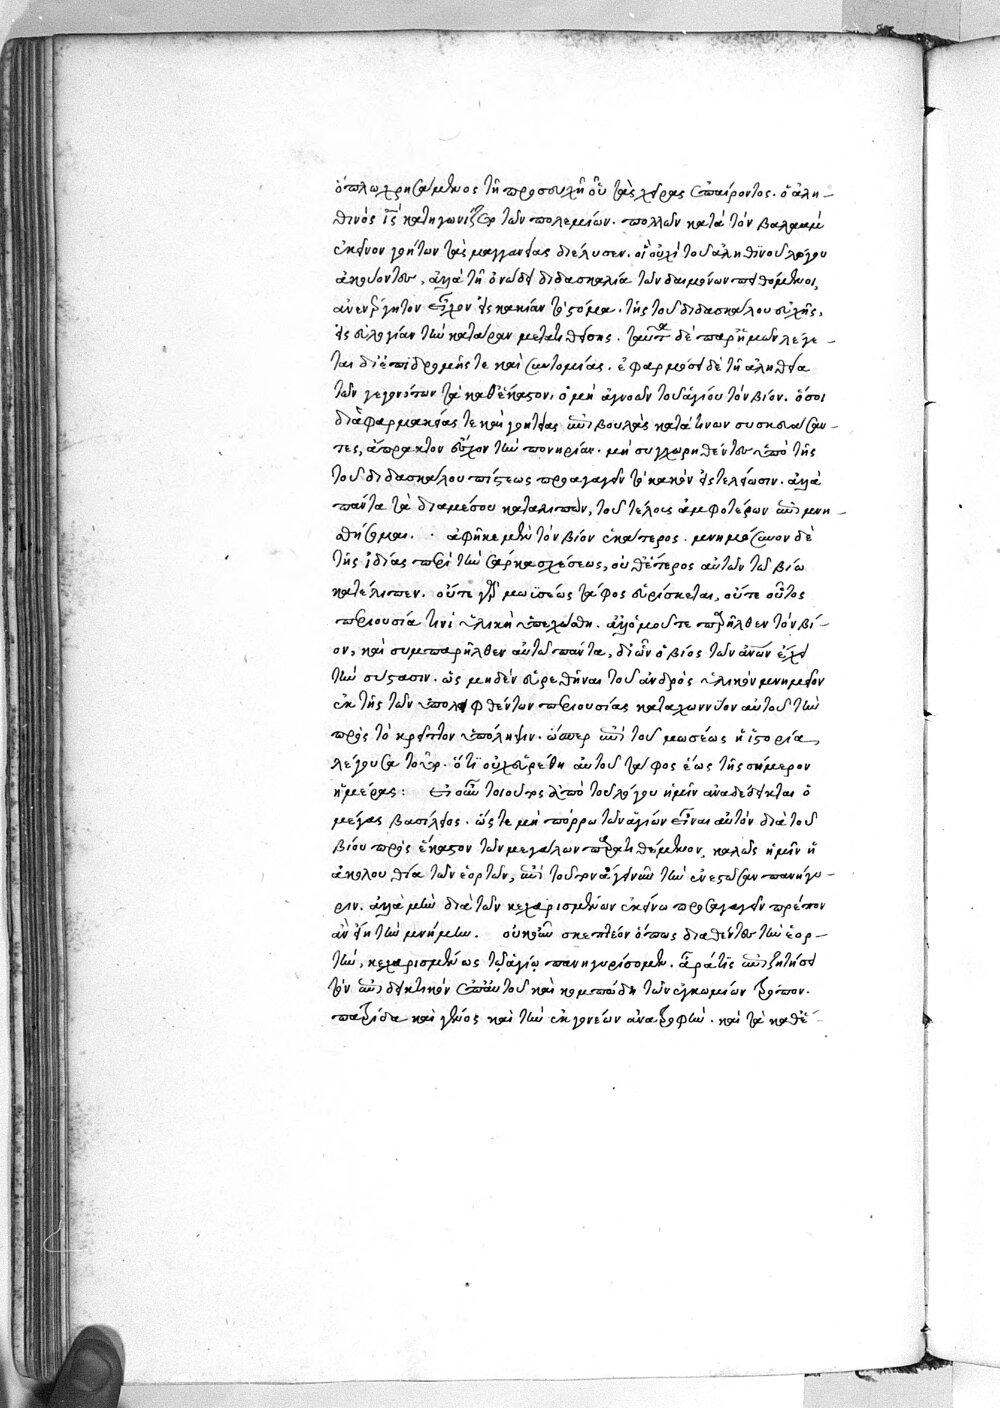 ὅπλω χρησάμενος τῆ προσευχῆ οὗ τὰς χεῖρας ἐπαίροντος. ὁ ἀλη-
θινὸς ἰς κατηγωνίζετο τῶν πολεμίων. πολλῶν κατὰ τὸν βαλαὰμ
ἐκεῖνον γοήτων τὰς μαγγανείας διέλυσεν. οἳ οὐχὶ τοῦ ἀληθινοῦ λόγου
ἀκούοντες, ἀλλὰ τῆ ὀνώδει διδασκαλία τῶν δαιμόνων πειθόμενοι,
ἀνενέργητον εἶχον εἰς κακίαν τὸ στόμα. τῆς τοῦ διδασκάλου εὐχῆς,
εἰς εὐλογίαν τὴν κατάραν μετατιθείσης. ταῦτα δὲ παρ' ἡμῶν λέγε-
ται δι' ἐπιδρομῆς τε καὶ συντομίας. ἐφαρμόσει δὲ τῆ ἀληθεία
τῶν γεγονότων τὰ καθέκαστον, ὁ μὴ ἀγνοῶν τοῦ ἁγίου τὸν βίον. ὅσοι
διὰ φαρμακείας τε καὶ γοητείας ἐπιβουλὰς κατά τινων συσκευάσαν-
τες, ἄπρακτον εὗρον τὴν πονηρίαν. μὴ συγχωρηθέντες ὑπὸ τῆς
τοῦ διδασκάλου πίστεως προαγαγεῖν τὸ κακὸν εἰς τελείωσιν. ἀλλὰ
πάντα τὰ διαμέσου καταλιπὼν, τοῦ τέλους ἀμφοτέρων ἐπιμνη-
θήσομαι. ἀφῆκε μὲν τὸν βίον ἑκάτερος. μνημόσυνον δὲ
τῆς ἰδίας περὶ τὴν σάρκα σχέσεως, οὐθέτερος αὐτῶν τῶ βίω
κατέλιπεν. οὔτε γὰρ μωϊσέως τάφος εὑρίσκεται, οὔτε οὗτος
περιουσία τινὶ ὑλικῆ ὑπεχώσθη. ἀλλ' ὁμοῦ τε παρῆλθεν τὸν βί-
ον, καὶ συμπαρῆλθεν αὐτῶ πάντα, δι' ὧν ὁ βίος τῶν ἀνων ἔχει
τὴν σύστασιν. ὡς μηδὲν εὑρεθῆναι τοῦ ἀνδρὸς ὑλικὸν μνημεῖον
ἐκ τῆς τῶν ὑπολειφθέντων περιουσίας καταχωννύον αὐτοῦ τὴν
πρὸς τὸ κρεῖττον ὑπόληψιν. ὥσπερ ἐπὶ τοῦ μωσέως ἡ ἱστορία
λέγουσα τοῦτο. ὅτι οὐχ εὑρέθη αὐτοῦ τάφος ἕως τῆς σήμερον
ἡμέρας: εἰ οὖν τοιοῦτος ἀπὸ τοῦ λόγου ἡμῖν ἀναδέδεικται ὁ
μέγας βασίλειος. ὥστε μὴ πόρρω τῶν ἁγίων εἶναι αὐτὸν διὰ τοῦ
βίου πρὸς ἕκαστον τῶν μεγάλων παρατιθέμενον, καλῶς ἡμῖν ἡ
ἀκολουθία τῶν ἑορτῶν, ἐπὶ τοῦτον ἄγει νῦν τὴν ἐνεστῶσαν πανήγυ-
ριν. ἀλλὰ μὴν διὰ τῶν κεχαρισμένων ἐκείνω προσαγαγεῖν πρέπον
ἂν εἴη τὴν μνήμην. οὐκοῦν σκεπτέον ὅπως διαθέντες τὴν ἑορ-
τὴν, κεχαρισμένως τῷ ἁγίῳ πανηγυρίσομεν. ἆρά τις ἐπιζητήσει
τὸν ἐπιδεικτικὸν ἐπ' αὐτοῦ καὶ κομπώδη τῶν ἐγκωμίων τρόπον.
πατρίδα καὶ γένος καὶ τὴν ἐκ γονέων ἀνατροφὴν. καὶ τὰ καθέ-